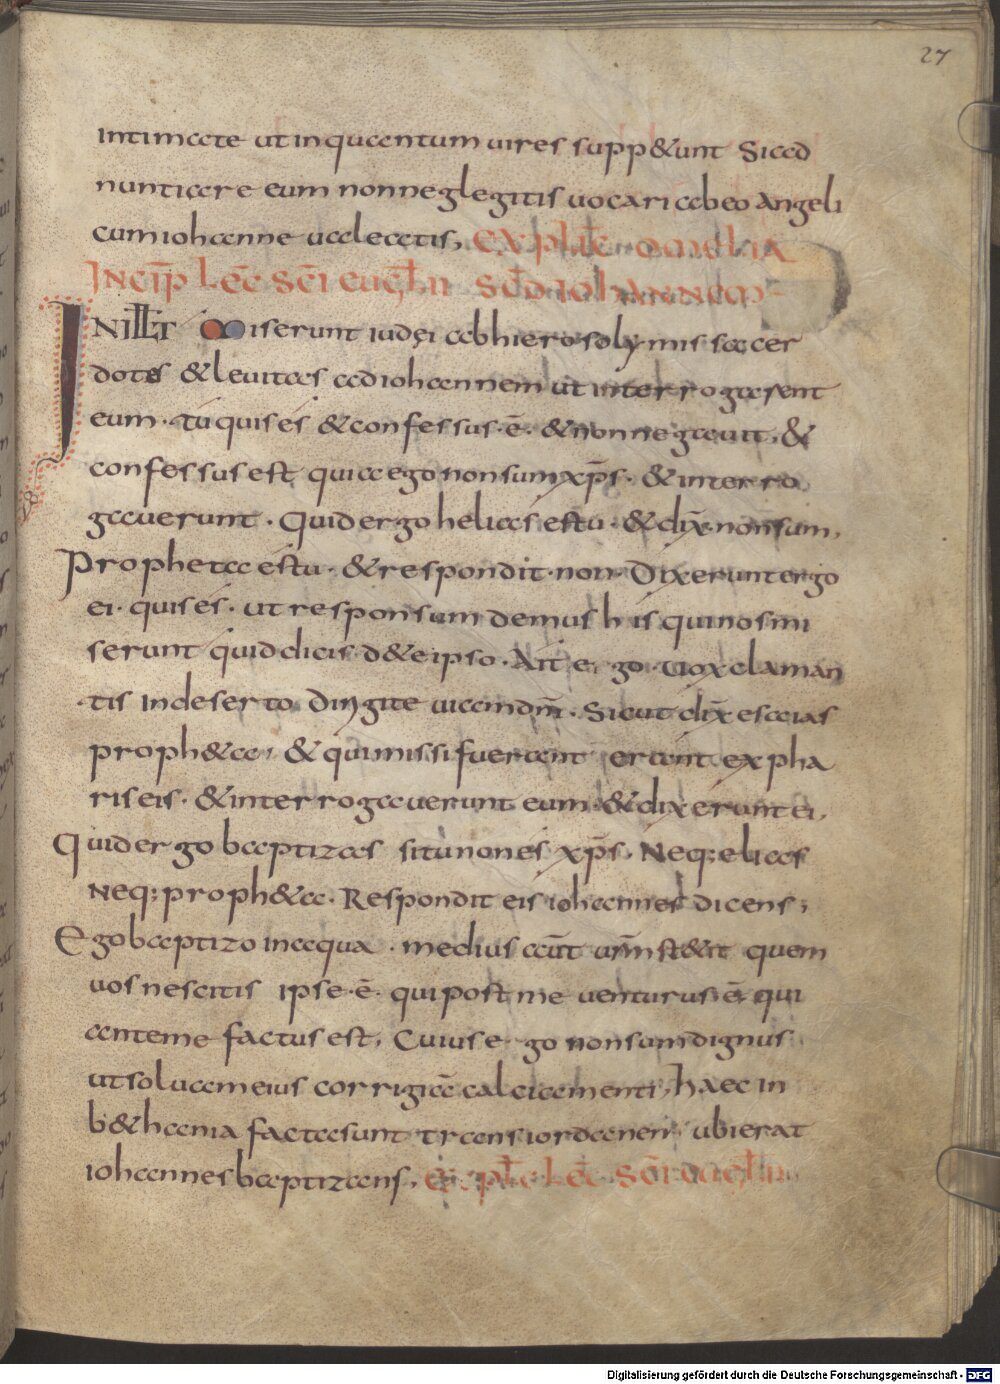 27
intimate ut inquantum uires supp&unt Si ad
nuntiare eum non neglegitis uocari abeo angeli
cum iohanne ualeatis, EXPLIC̄ OMELIA
INCIP̄ LĒC SC̄I EUGL̄II SCD̄ IOHANNEM
IN ILLT Miserunt iudęi ab hierosolymis sacer
dotes & leuitas ad iohannem ut interrogarent
eum. tu quis es & confessus. ē. & non negauit, &
confessus est quia ego non sum xp̄s. & interro
gauerunt. Quid ergo helias es tu. & dix̄. non sum,
Propheta es tu. & respondit. non. Dixerunt ergo
ei. quis es. ut responsum demus his qui nos mi
serunt quid dicis d&eipso. Ait ergo. uox claman
tis In deserto Dirigite uiam dn̄i. Sicut dix̄ esaias
proph&a, & qui missi fuerant erant ex pha
riseis. & interrogauerunt eum. & dixerunt ei,
Quid ergo baptizas si tu non es xp̄s. Neq; elias
Neq; proph&a. Respondit eis iohannes dicens,
Ego baptizo in aqua. medius aūt ur̄m st&it quem
uos nescitis ipse. ē. qui post me uenturus. ē. qui
ante me factus est, Cuius ego non sum dignus
ut soluam eius corrigiā calciamenti, haec in
b&hania facta sunt trans iordanen ubi erat
iohannes baptizans, EXPLIC̄ LĒC SC̄I EUGL̄II
Digitalisierung gefördert durch die Deutsche Forschungsgemeinschaft - DFG